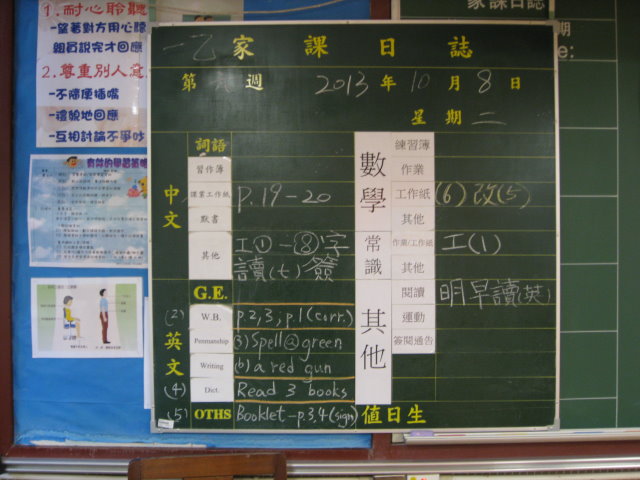 1. 耐心聆聽
-望著對方用心聽
2. 尊重別人意
-不隨便插嘴
-禮貌地回應
-互相討論不爭吵
家課日誌
期
e:
一乙家課日誌
第 週 2013年10月8日
星期二
中文
詞語
習作簿
課業工作紙 p.19-20
默書
其他 工①-⑧字
讀(七)簽
英文
G.E.
(2) W.B. p.2,3,p.1(corr.)
Penmanship (3) Spell@green
Writing (b) a red gun
(4) Dict. Read 3 books
(5) OTHS Booklet-p.3,4(sign)
數學
練習簿
作業
工作紙 (6) 改(5)
其他
常識
作業/工作紙 工(1)
其他
其他
閱讀 明早讀(英)
運動
簽閱通告
值日生